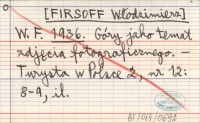 [FIRSOFF Włodzimierz]
W. F. 1936. Góry jako temat
zdjęcia fotograficznego. —
Turysta w Polsce 2, nr 12:
8-9, il.
BT/015/0691